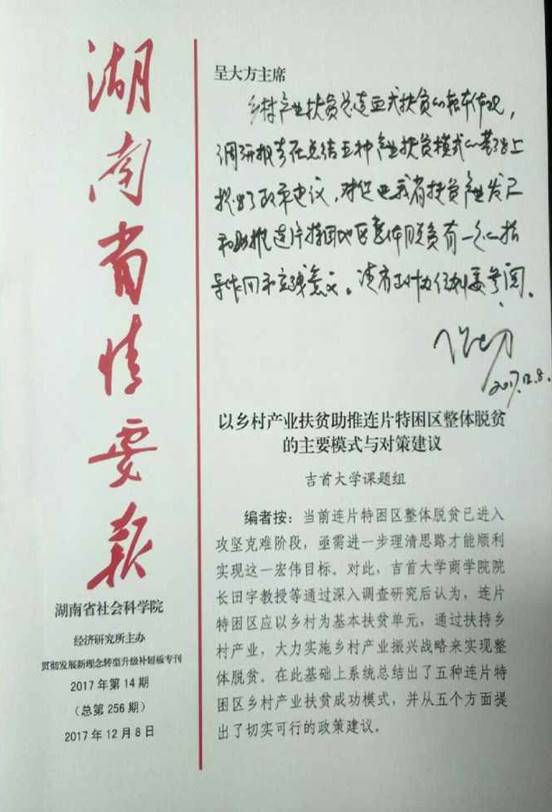 湖南省情要报
湖南省社会科学院
经济研究所主办
贯彻发展新理念转型升级补短板专刊
2017年第14期
（总第256期）
2017年12月8日
呈大方主席
乡村产业扶贫是造血式扶贫的
调研报告在总结五种产业扶贫模式的基础上
提出了政策建议，对促进我省扶贫产业发展
和助推连片特困地区整体脱贫有一定的指
导作用和意义。
2017.12.8.
以乡村产业扶贫助推连片特困区整体脱贫
的主要模式与对策建议
吉首大学课题组
编者按：当前连片特困区整体脱贫已进入
攻坚克难阶段，亟需进一步理清思路才能顺利
实现这一宏伟目标。对此，吉首大学商学院院
长田宇教授等通过深入调查研究后认为，连片
特困区应以乡村为基本扶贫单元，通过扶持乡
村产业，大力实施乡村产业振兴战略来实现整
体脱贫。在此基础上系统总结出了五种连片特
困区乡村产业扶贫成功模式，并从五个方面提
出了切实可行的政策建议。